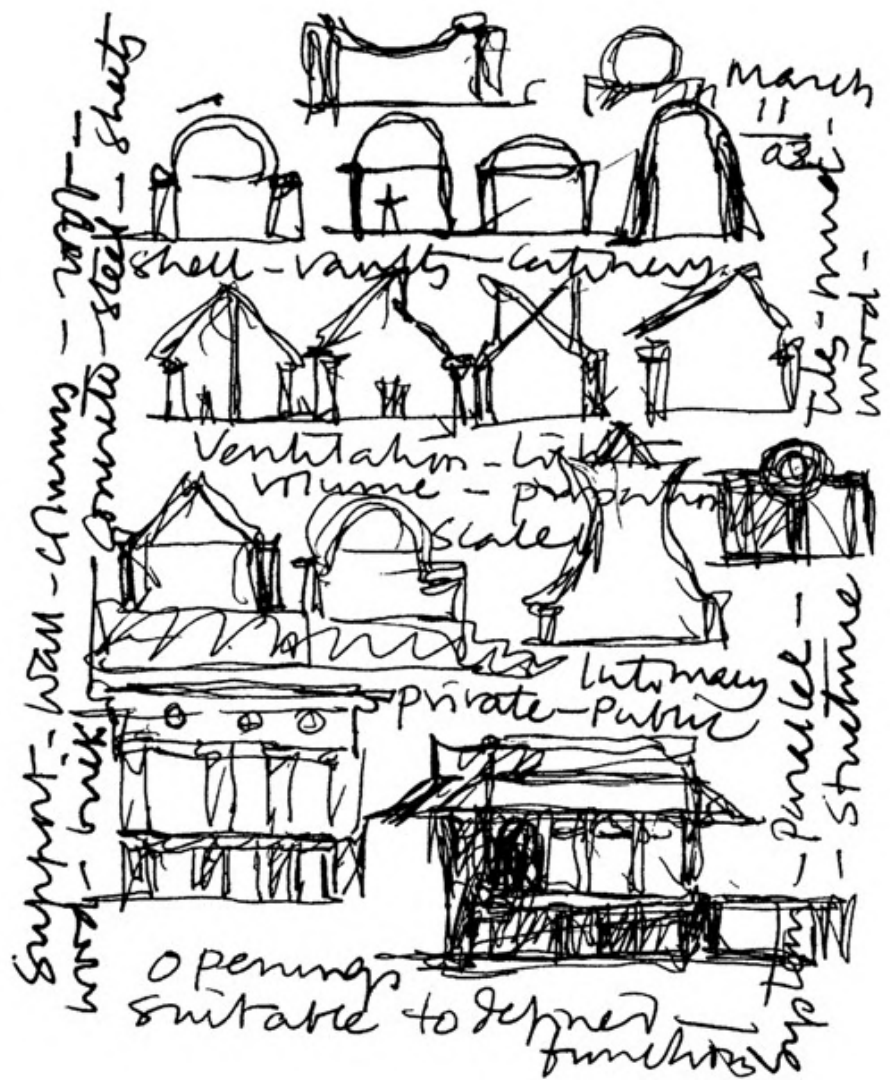 March
11
03
shell - vaults - catinery
Ventilation - Light
volume - proportion
Scale
Intimacy
private - Public
Openings
suitable to defined
functions
Support - Wall - columns - roof -
wood - brick concrete - steel - sheets
Tiles - mud -
wood -
System - Parallel -
- Structure